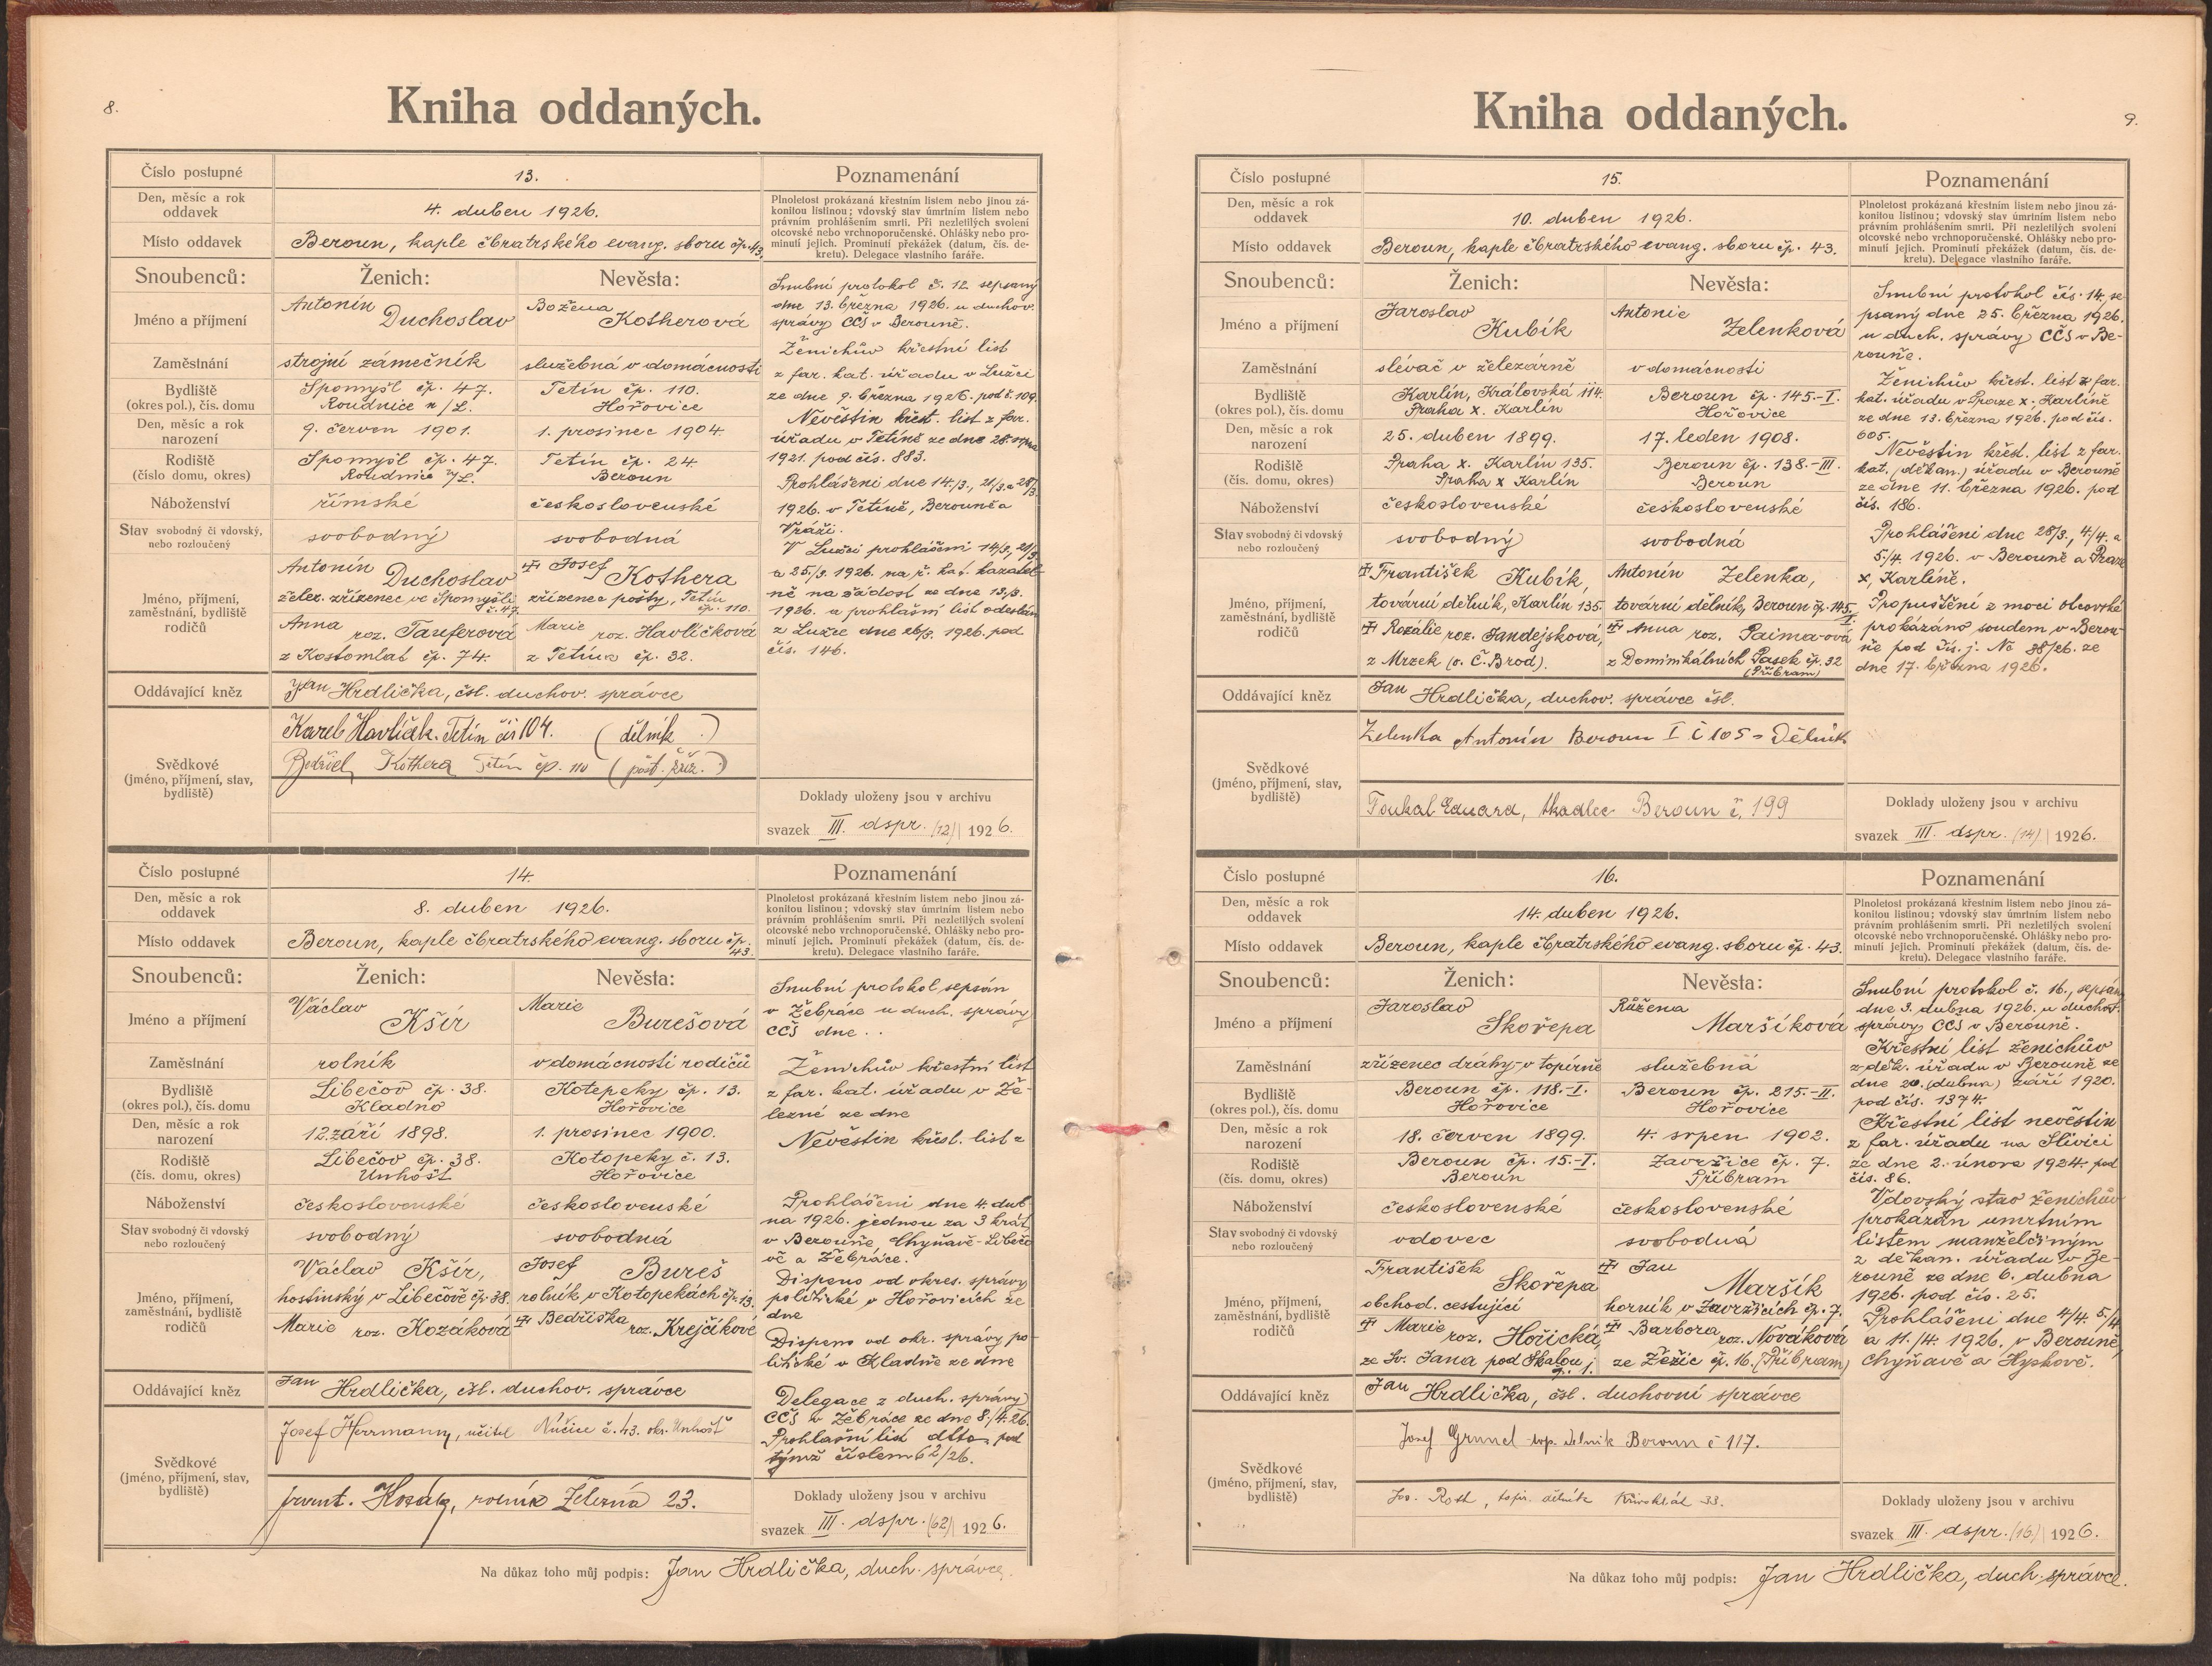 8.
Kniha oddaných.
Číslo postupné
13.
Poznamenání
Den, měsíc a rok
oddavek
4. duben 1926.
Plnoletost prokázaná křestním listem nebo jinou zá-
konitou listinou; vdovský stav úmrtním listem nebo
právním prohlášením smrti. Při nezletilých svolení
otcovské nebo vrchnoporučenské. Ohlášky nebo pro-
minutí jejich. Prominutí překážek (datum, čís. de-
kretu). Delegace vlastního faráře.
Místo oddavek
Beroun, kaple čbratrského evang. sboru čp. 43.
Snoubenců:
Ženich:
Nevěsta:
Jméno a příjmení
Antonín
Duchoslav
Božena
Kotherová
Zaměstnání
strojní zámečník
služebná v domácnosti
Bydliště
(okres pol.), čís. domu
Spomyšl čp. 47.
Roudnice n/L.
Tetín čp. 110.
Hořovice
Den, měsíc a rok
narození
9. červen 1901.
1. prosinec 1904.
Rodiště
(číslo domu, okres)
Spomyšl čp. 47.
Roudnice n/L.
Tetín čp. 24.
Beroun
Náboženství
římské
československé
Stav svobodný či vdovský,
nebo rozloučený
svobodný
svobodná
Jméno, příjmení,
zaměstnání, bydliště
rodičů
Antonín
Duchoslav
želez. zřízenec ve Spomyšli
č. 47
Anna
roz. Tauferová
z Kostomlat čp. 74.
Josef
Kothera
zřízenec pošty, Tetín
čp. 110.
Marie
roz. Havlíčková
z Tetína čp. 32.
Oddávající kněz
Jan Hrdlička, čsl. duchov. správce
Svědkové
(jméno, příjmení, stav,
bydliště)
Karel Havlíček. Tetín čís 104. (dělník.)
Kothera Tetín čp. 110 (pošt. zříz.)
Snubní protokol č. 12 sepsaný
dne 13. března 1926. u duchov.
správy CČS v Berouně.
Ženichův křestní list
z far. kat. úřadu v Lužci
ze dne 9. března 1926. pod č. 109.
Nevěstin křest. list z far.
úřadu v Tetíně ze dne 28. srpna
1921. pod čís. 883.
Prohlášeni dne 14./3., 21/3. a 28/3.
1926. v Tetíně, Berouně a
Vráži.
V Lužci prohlášeni 14/3., 21/3.
a 25./3. 1926. na ř. kat. kazatel-
ně na žádost ze dne 13./3.
1926. a prohlašní list odeslán
z Lužce dne 26/3. 1926. pod
čís. 146.
Doklady uloženy jsou v archivu
svazek III. dspr. (12) 1926.
Číslo postupné
14.
Poznamenání
Den, měsíc a rok
oddavek
8. duben 1926.
Plnoletost prokázaná křestním listem nebo jinou zá-
konitou listinou; vdovský stav úmrtním listem nebo
právním prohlášením smrti. Při nezletilých svolení
otcovské nebo vrchnoporučenské. Ohlášky nebo pro-
minutí jejich. Prominutí překážek (datum, čís. de-
kretu). Delegace vlastního faráře.
Místo oddavek
Beroun, kaple čbratrského evang. sboru čp. 43.
Snoubenců:
Ženich:
Nevěsta:
Jméno a příjmení
Václav
Kšír
Marie
Burešová
Zaměstnání
rolník
v domácnosti rodičů
Bydliště
(okres pol.), čís. domu
Libečov čp. 38.
Kladno
Kotopeky čp. 13.
Hořovice
Den, měsíc a rok
narození
12. září 1898.
1. prosinec 1900.
Rodiště
(čís. domu, okres)
Libečov čp. 38.
Unhošť
Kotopeky č. 13.
Hořovice
Náboženství
československé
československé
Stav svobodný či vdovský
nebo rozloučený
svobodný
svobodná
Jméno, příjmení,
zaměstnání, bydliště
rodičů
Václav Kšír,
hostinský v Libečově čp. 38.
Marie roz. Kozáková
Josef Bureš
rolník v Kotopekách čp. 13.
Bedřiška
roz. Krejčíkové
Oddávající kněz
Jan Hrdlička, čsl. duchov. správce
Svědkové
(jméno, příjmení, stav,
bydliště)
Josef Herrmann, učitel Nučice č. 43. okr. Unhošť
Frant. Kozák, rolník Železná 23.
Snubní protokol sepsán
v Žebráce u duch. správy
CČS dne . .
Ženichův křestní list
z far. kat. úřadu v Že-
lezné ze dne
Nevěstin křest. list z
Prohlášeni dne 4. dub-
na 1926. jednou za 3 krát
v Berouně, Chyňavě-Libečo
vě a Žebráce.
Dispens od okres. správy
politické v Hořovicích ze
dne
Dispens od okr. správy po-
litické v Kladně ze dne
Delegace z duch. správy
CČS v Žebráce ze dne 8./4. 26.
Prohlašní list dtto. pod
týmž číslem 62/26.
Doklady uloženy jsou v archivu
svazek III. dspr. (62) 1926.
Na důkaz toho můj podpis: Jan Hrdlička, duch. správce.
9.
Kniha oddaných.
Číslo postupné
15.
Poznamenání
Den, měsíc a rok
oddavek
10. duben 1926.
Plnoletost prokázaná křestním listem nebo jinou zá-
konitou listinou; vdovský stav úmrtním listem nebo
právním prohlášením smrti. Při nezletilých svolení
otcovské nebo vrchnoporučenské. Ohlášky nebo pro-
minutí jejich. Prominutí překážek (datum, čís. de-
kretu). Delegace vlastního faráře.
Místo oddavek
Beroun, kaple čbratrského evang. sboru čp. 43.
Snoubenců:
Ženich:
Nevěsta:
Jméno a příjmení
Jaroslav
Kubík
Antonie
Zelenková
Zaměstnání
slévač v železárně
v domácnosti
Bydliště
(okres pol.), čís. domu
Karlín, Královská 114.
Praha X. Karlín
Beroun čp. 145.-I.
Hořovice
Den, měsíc a rok
narození
25. duben 1899.
17. leden 1908.
Rodiště
(čís. domu, okres)
Praha X. Karlín 135.
Praha X Karlín
Beroun čp. 138.-III.
Beroun
Náboženství
československé
československé
Stav svobodný či vdovský
nebo rozloučený
svobodný
svobodná
Jméno, příjmení,
zaměstnání, bydliště
rodičů
František Kubík,
tovární dělník, Karlín 135.
Rozálie roz. Jandejsková,
z Mrzek (o. Č. Brod).
Antonín Zelenka,
tovární dělník, Beroun čp. 145.
I.
Anna roz. Paimaová
z Dominikálních Pasek čp. 32
(Příbram)
Oddávající kněz
Jan Hrdlička, duchov. správce čsl.
Svědkové
(jméno, příjmení, stav,
bydliště)
Zelenka Antonín Beroun I č 105 - Dělník
Toukal Eduard, tkadlec Beroun č. 199
Snubní protokol čís. 14, se-
psaný dne 25. března 1926.
u duch. správy CČS v Be-
rouně.
Ženichův křest. list z far.
kat. úřadu v Praze X. Karlíně
ze dne 13. března 1926. pod čís.
605.
Nevěstin křest. list z far.
kat. (děkan.) úřadu v Berouně
ze dne 11. března 1926. pod
čís. 186.
Prohlášeni dne 28/3., 4./4. a
5./4. 1926. v Berouně a Praze
X, Karlíně.
Propuštění z moci otcovské
prokázáno soudem v Berou-
ně pod čís. j. Nc 38/26. ze
dne 17. března 1926.
Doklady uloženy jsou v archivu
svazek III. dspr. (14) 1926.
Číslo postupné
16.
Poznamenání
Den, měsíc a rok
oddavek
14. duben 1926.
Plnoletost prokázaná křestním listem nebo jinou zá-
konitou listinou; vdovský stav úmrtním listem nebo
právním prohlášením smrti. Při nezletilých svolení
otcovské nebo vrchnoporučenské. Ohlášky nebo pro-
minutí jejich. Prominutí překážek (datum, čís. de-
kretu). Delegace vlastního faráře.
Místo oddavek
Beroun, kaple čbratrského evang. sboru čp. 43.
Snoubenců:
Ženich:
Nevěsta:
Jméno a příjmení
Jaroslav
Skořepa
Růžena
Maršíková
Zaměstnání
zřízenec dráhy-v topírně
služebná
Bydliště
(okres pol.), čís. domu
Beroun čp. 118.-I.
Hořovice
Beroun čp. 215.-II.
Hořovice
Den, měsíc a rok
narození
18. červen 1899.
4. srpen 1902.
Rodiště
(čís. domu, okres)
Beroun čp. 15.-I.
Beroun
Zavržice čp. 7.
Příbram
Náboženství
československé
československé
Stav svobodný či vdovský
nebo rozloučený
vdovec
svobodná
Jméno, příjmení,
zaměstnání, bydliště
rodičů
František
Skořepa
obchod. cestující
Marie roz. Hořická,
ze Sv. Jana pod Skalou
Jan
Maršík
horník v Zavržicích čp. 7.
Barbora roz. Nováková
ze Žežic čp. 16. (Příbram)
Oddávající kněz
Jan Hrdlička, čsl. duchovní správce
Svědkové
(jméno, příjmení, stav,
bydliště)
Josef Grund top. dělník Beroun č 117.
Jos. Roth, topír. dělník Křivoklát 33.
Snubní protokol č. 16., sepsán
dne 3. dubna 1926. u duchov.
správy CČS v Berouně.
Křestní list ženichův
z děk. úřadu v Berouně ze
dne 20. (dubna) září 1920.
pod čís. 1374.
Křestní list nevěstin
z far. úřadu na Slivici
ze dne 2. února 1924. pod
čís. 86.
Vdovský stav ženichův
prokázán umrtním
listem manželčiným
z děkan. úřadu v Be-
rouně ze dne 6. dubna
1926. pod čís. 25.
Prohlášeni dne 4/4. 5/4
a 11./4. 1926. v Berouně,
Chyňavě a Hyskově.
Doklady uloženy jsou v archivu
svazek III. dspr. (16) 1926.
Na důkaz toho můj podpis: Jan Hrdlička, duch. správce.